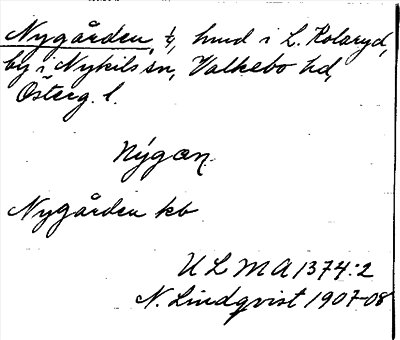 Nygården, t, hmd i L. Kolaryd,
by i Nykils sn, Valkebo hd,
Österg. l.
Nýgæn
Nygården kb
ULMA 1374:2
N. Lindqvist 1907-08